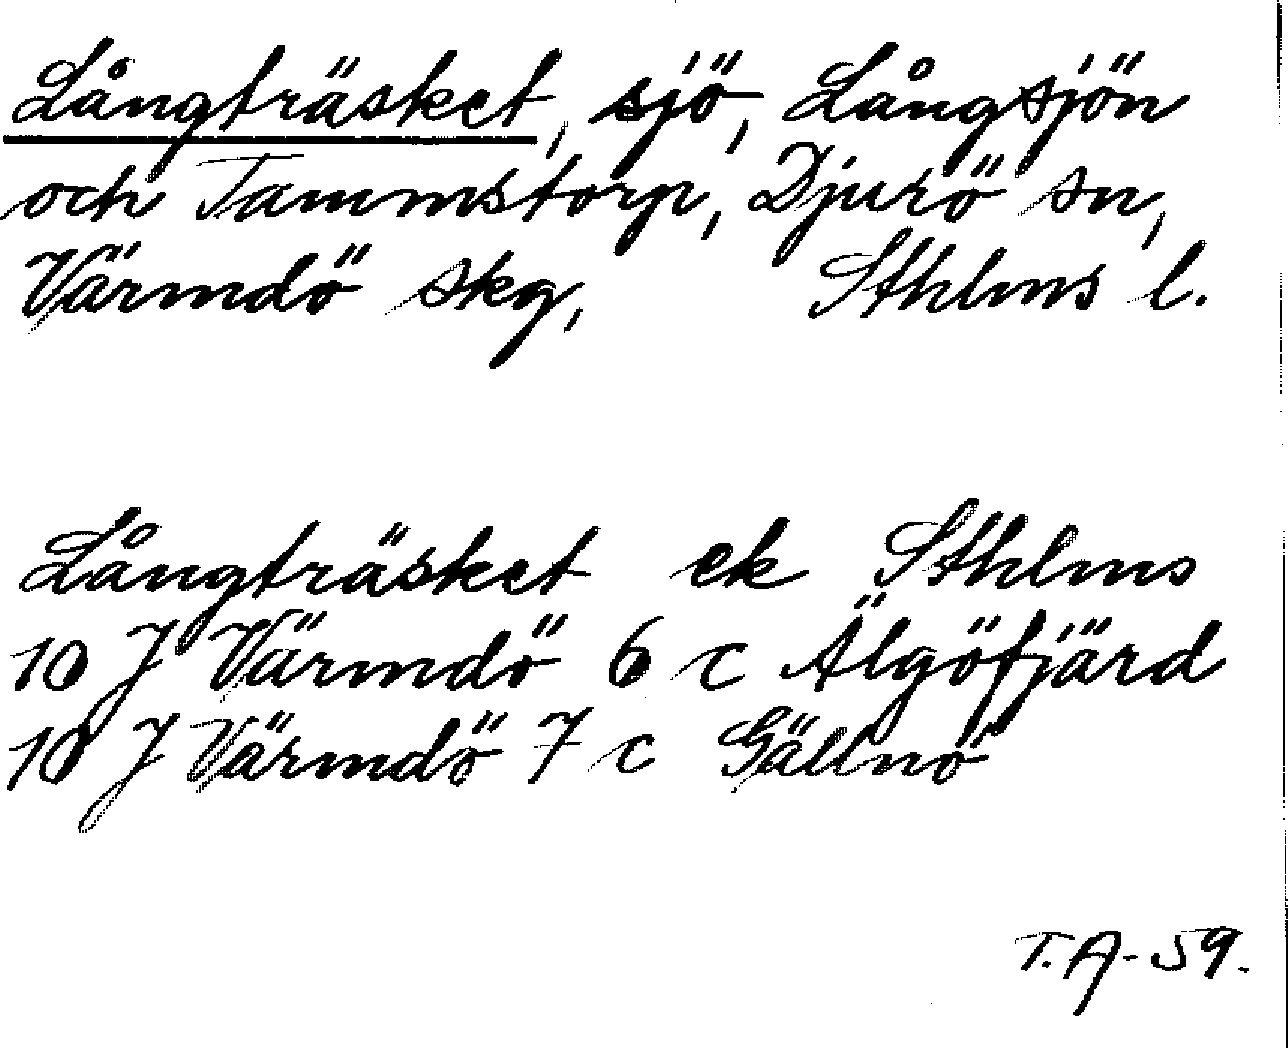 Långträsket, sjö, Långsjön
och Tammstorp, Djurö sn,
Värmdö skg, Sthlms l.
Långträsket ek Sthlms
10 J Värmdö 6 c Älgöfjärd
10 J Värmdö 7 c Gällnö
T.A-59.